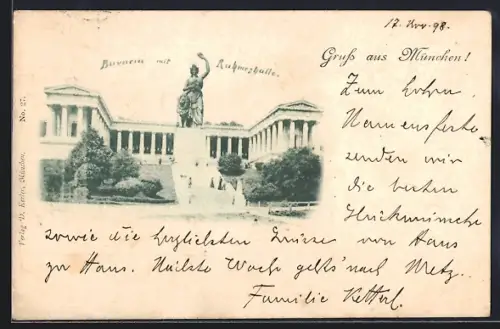 17. Nov. 98.
Bavaria mit Ruhmeshalle.
Gruß aus München!
No. 27.
Verlag
München.
Zum hohen
Namensfeste
senden wir
die besten
Glückwünsche
sowie die herzlichsten Grüsse von Haus
zu Haus. Nächste Woche geht's nach Metz.
Familie Ketterl.